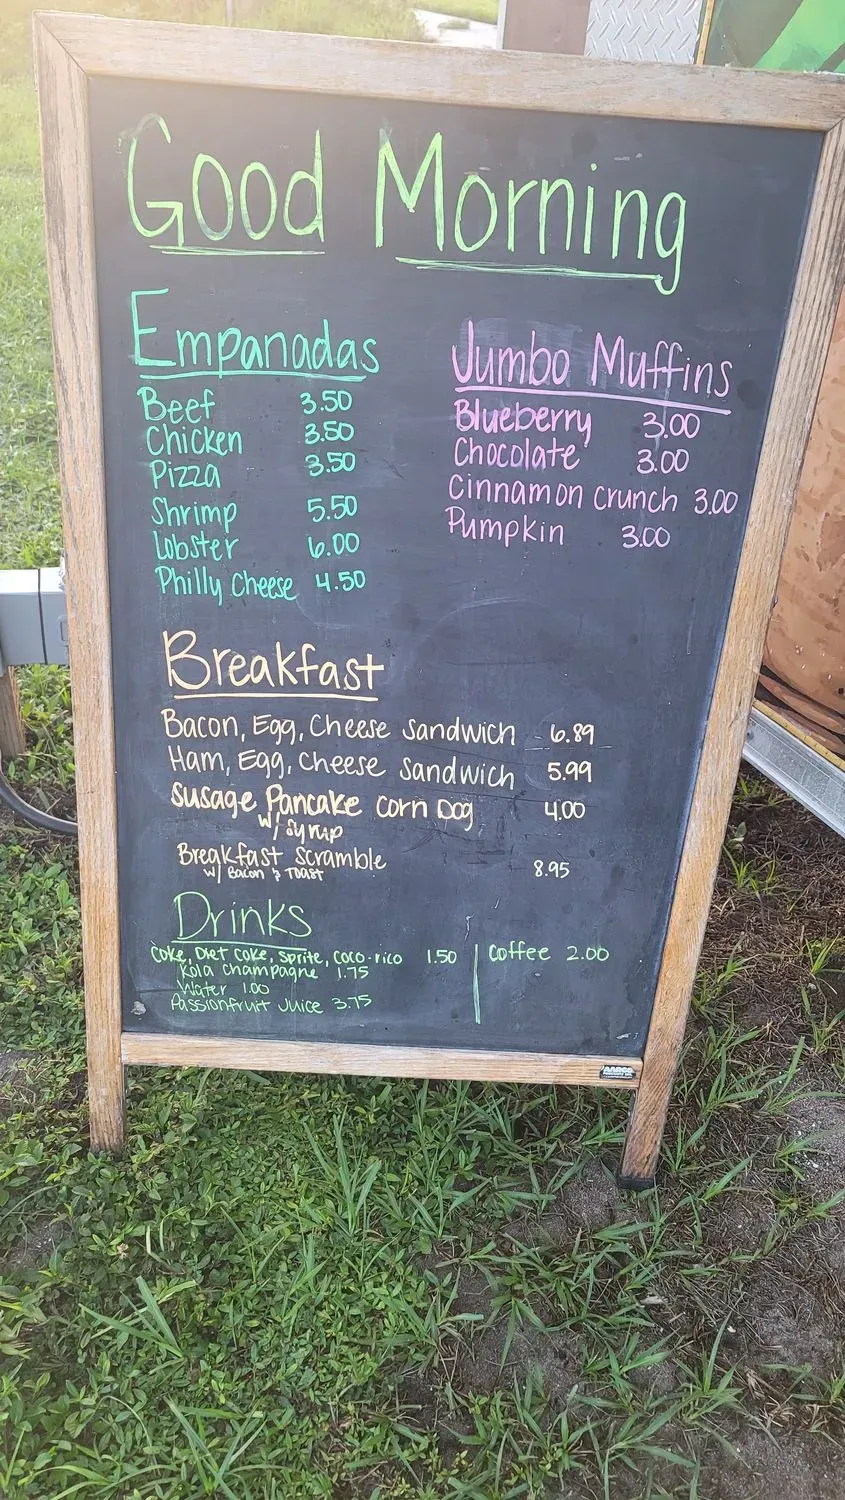 Good Morning
Empanadas
Beef 3.50
Chicken 3.50
Pizza 3.50
Shrimp 5.50
Lobster 6.00
Philly Cheese 4.50
Jumbo Muffins
Blueberry 3.00
Chocolate 3.00
Cinnamon Crunch 3.00
Pumpkin 3.00
Breakfast
Bacon, Egg, Cheese Sandwich 6.89
Ham, Egg, Cheese Sandwich 5.99
Susage Pancake Corn Dog 4.00
w/ Syrup
Breakfast Scramble 8.95
w/ Bacon & Toast
Drinks
Coke, Diet Coke, Sprite, Coco-rico 1.50
Kola Champagne 1.75
Water 1.00
Passionfruit Juice 3.75
Coffee 2.00
AARCO